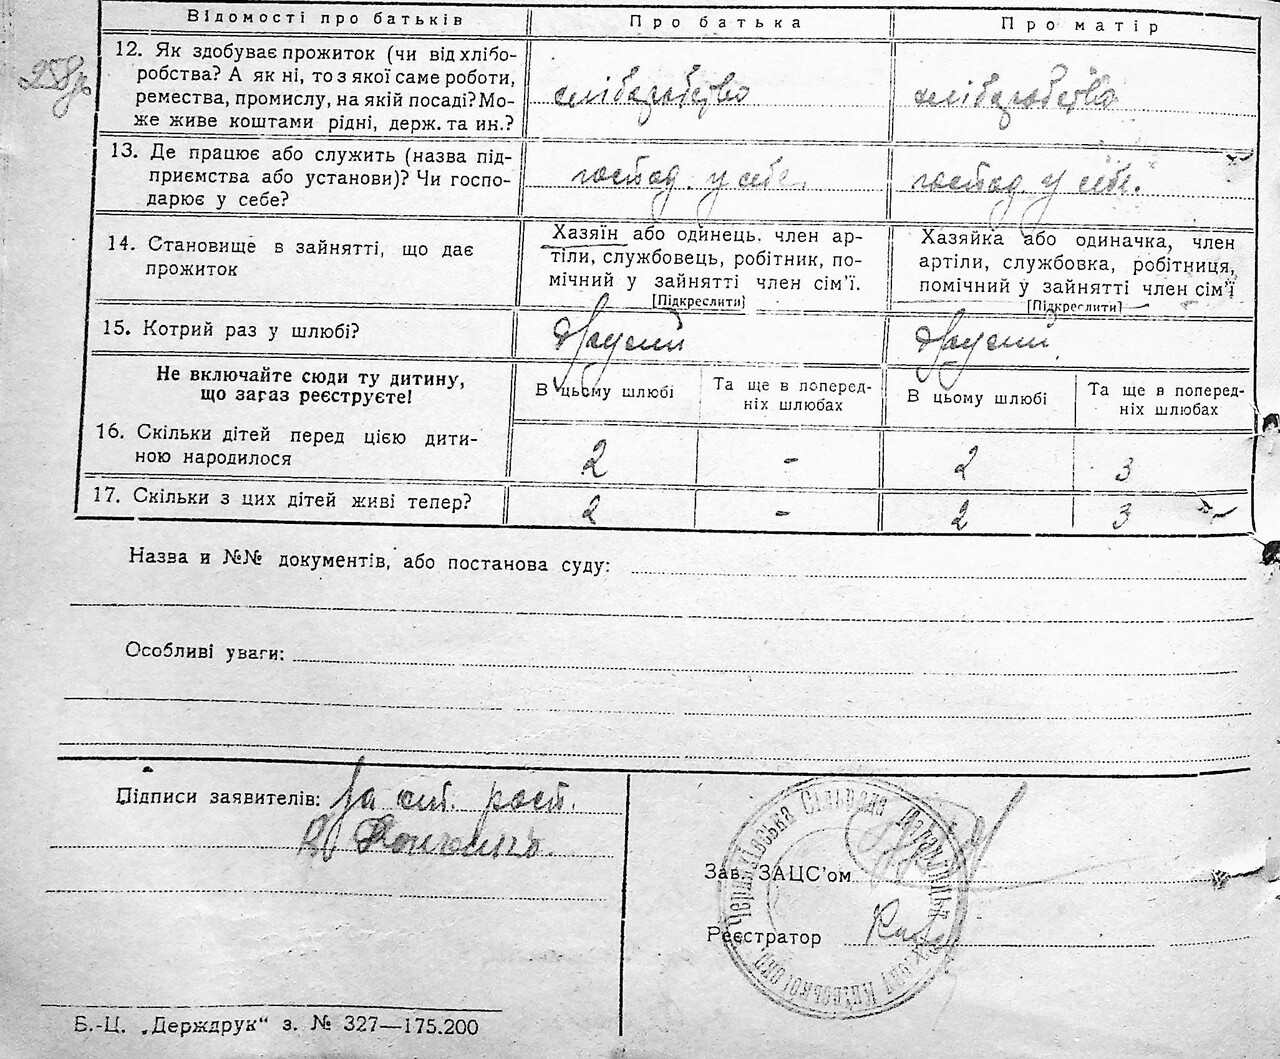 Відомості про батьків Про батька Про матір
12. Як здобуває прожиток (чи від хлібо-
робства? А як ні, то з якої саме роботи,
ремества, промислу, на якій посаді? Мо-
же живе коштами рідні, держ. та ин.?
хліборобство хліборобство
13. Де працює або служить (назва під-
приємства або установи)? Чи госпо-
дарює у себе?
господ. у себе. господ. у себе.
14. Становище в зайнятті, що дає
прожиток
Хазяїн або одинець, член ар-
тіли, службовець, робітник, по-
мічний у зайнятті член сім'ї.
[Підкреслити]
Хазяйка або одиначка, член
артіли, службовка, робітниця,
помічний у зайнятті член сім'ї
[Підкреслити]
15. Котрий раз у шлюбі?
другий другий
Не включайте сюди ту дитину,
що зараз реєструєте!
В цьому шлюбі
Та ще в поперед-
ніх шлюбах
В цьому шлюбі
Та ще в поперед-
ніх шлюбах
16. Скільки дітей перед цією дити-
ною народилося
2 - 2 3
17. Скільки з цих дітей живі тепер?
2 - 2 3
Назва и №№ документів, або постанова суду:
Особливі уваги:
Підписи заявителів:
Зав. ЗАЦС'ом
Реєстратор
Б.-Ц. „Держдрук“ з. № 327—175.200